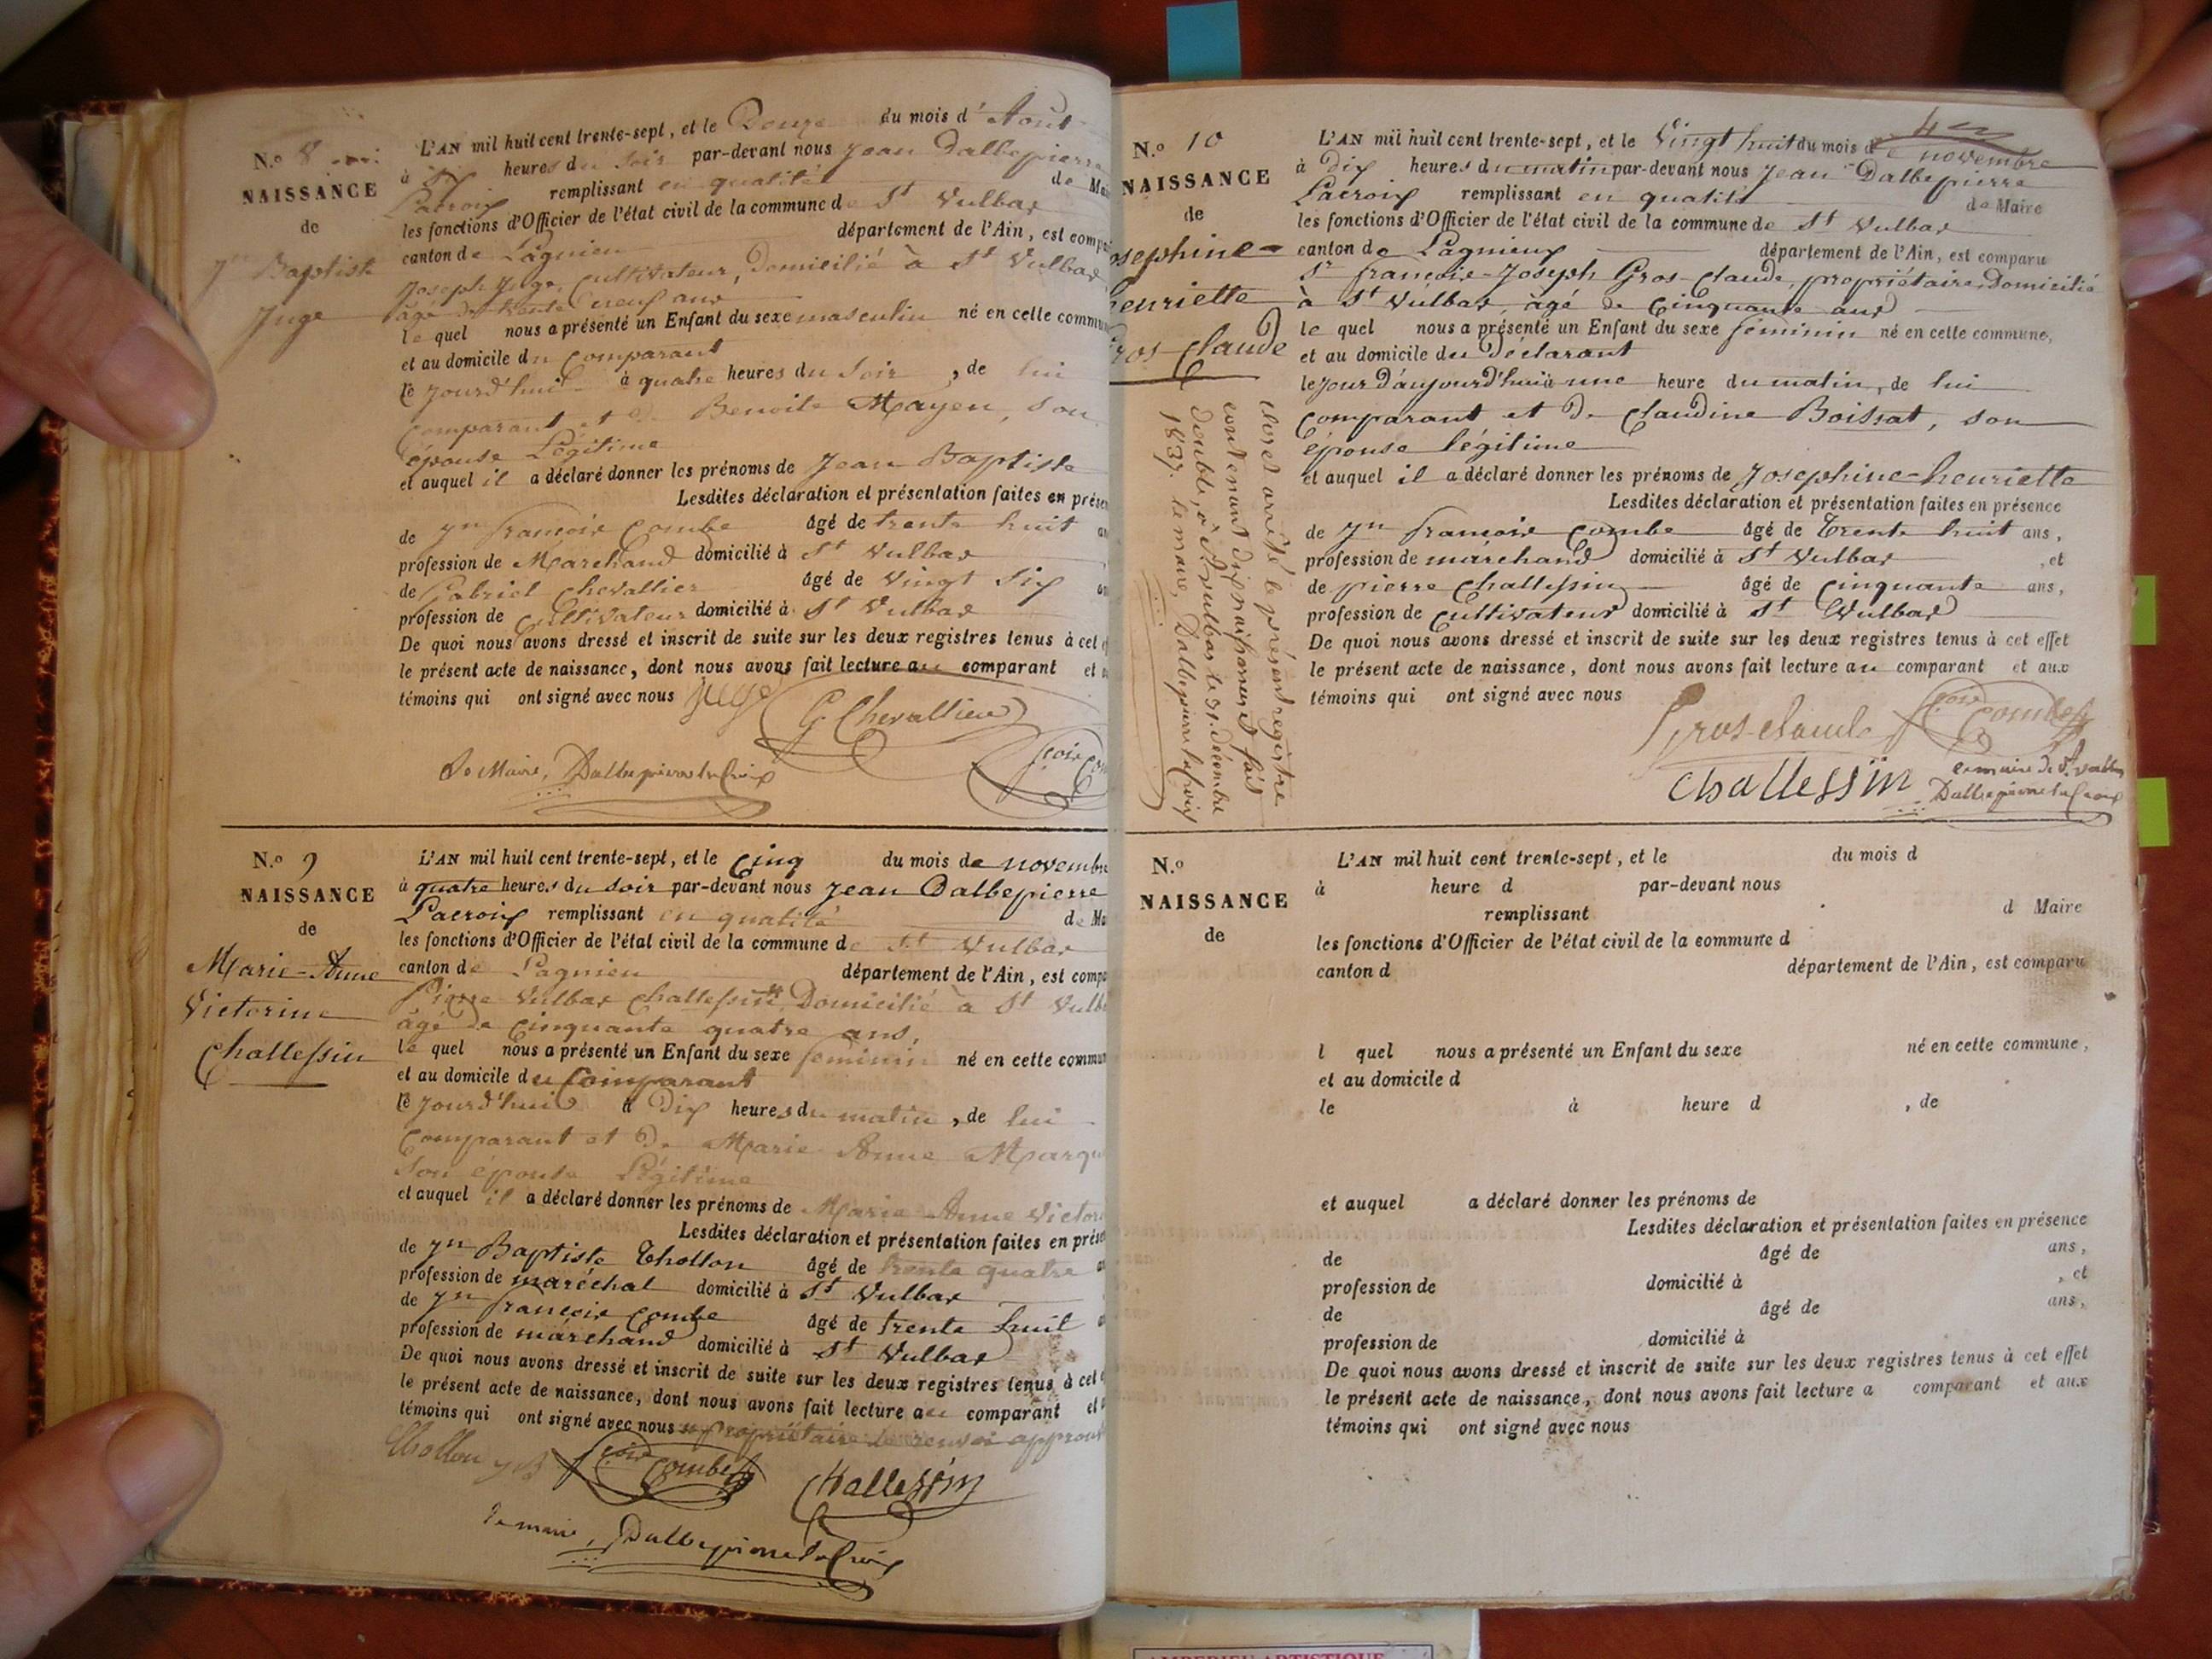 N.o 8
NAISSANCE
de
Jn Baptiste
Juge
L'AN mil huit cent trente-sept, et le Douze du mois d'Août
à Six heures du Soir par-devant nous Jean Dalbepierre
Lacroix remplissant en qualité de Mai
les fonctions d'Officier de l'état civil de la commune de St Vulbas
canton de Lagnieu département de l'Ain, est compa
Joseph Juge, cultivateur, Domicilié à St Vulbas
âgé de trente neuf ans
le quel nous a présenté un Enfant du sexe masculin né en cette commu
et au domicile du Comparant
le Jourd'hui à quatre heures du Soir, de lui
Comparant et de Benoite Mayen, son
épouse Légitime
et auquel il a déclaré donner les prénoms de Jean Baptiste
Lesdites déclaration et présentation faites en prése
de Jn françois Combe âgé de trente huit an
profession de Marchand domicilié à St Vulbas
de Gabriel Chevallier âgé de Vingt Six an
profession de Cultivateur domicilié à St Vulbas
De quoi nous avons dressé et inscrit de suite sur les deux registres tenus à cet e
le présent acte de naissance, dont nous avons fait lecture au comparant et a
témoins qui ont signé avec nous Juge
G. Chevallier
fçois Com
Le Maire, Dallepierre laCroix
N.o 9
NAISSANCE
de
Marie-Anne
Victorine
Challessin
L'AN mil huit cent trente-sept, et le Cinq du mois de novembre
à quatre heures du Soir par-devant nous Jean Dalbepierre
Lacroix remplissant en qualité de Ma
les fonctions d'Officier de l'état civil de la commune de St Vulbas
canton de Lagnieu département de l'Ain, est compa
Pierre Vulbas Challessin Domicilié à St Vulb
âgé de Cinquante quatre ans,
le quel nous a présenté un Enfant du sexe féminin né en cette commun
et au domicile du Comparant
le Jourd'hui à Dix heures du matin, de lui
Comparant et de Marie Anne Marqu
Son épouse Légitime
et auquel il a déclaré donner les prénoms de Marie Anne Victori
Lesdites déclaration et présentation faites en prése
de Jn Baptiste Thollon âgé de trente quatre a
profession de maréchal domicilié à St Vulbas
de Jn françois Combe âgé de trente huit a
profession de marchand domicilié à St Vulbas
De quoi nous avons dressé et inscrit de suite sur les deux registres tenus à cet e
le présent acte de naissance, dont nous avons fait lecture au comparant et a
témoins qui ont signé avec nous propriétaire le renvoi approuv
Thollon fçois Combe Challessin
le maire, Dallepierre laCroix
N.o 10
NAISSANCE
de
osephine-
henriette
ros-Claude
Clos et arrêté le présent registre
contenant dix naissances et fait
double, à St Vulbas le 31 décembre
1837. le maire, Dallepierre laCroix
L'AN mil huit cent trente-sept, et le Vingt huit du mois de novembre
à Dix heures du matin par-devant nous Jean Dalbepierre
Lacroix remplissant en qualité de Maire
les fonctions d'Officier de l'état civil de la commune de St Vulbas
canton de Lagnieux département de l'Ain, est comparu
Sr françois-Joseph Gros-Claude, propriétaire, Domicilié
à St Vulbas, âgé de Cinquante ans
le quel nous a présenté un Enfant du sexe féminin né en cette commune,
et au domicile du Déclarant
le jour d'aujourd'hui à une heure du matin, de lui
Comparant et de Claudine Boissat, son
épouse légitime
et auquel il a déclaré donner les prénoms de Josephine-henriette
Lesdites déclaration et présentation faites en présence
de Jn françois Combe âgé de Trente huit ans,
profession de marchand domicilié à St Vulbas, et
de pierre Challessin âgé de Cinquante ans,
profession de Cultivateur domicilié à St Vulbas
De quoi nous avons dressé et inscrit de suite sur les deux registres tenus à cet effet
le présent acte de naissance, dont nous avons fait lecture au comparant et aux
témoins qui ont signé avec nous
Grosclaude fçois Combe
Challessin
le maire de St Vulbas
Dallepierre laCroix
N.o
NAISSANCE
de
L'AN mil huit cent trente-sept, et le du mois d
à heure d par-devant nous
remplissant d Maire
les fonctions d'Officier de l'état civil de la commune d
canton d département de l'Ain, est comparu
l quel nous a présenté un Enfant du sexe né en cette commune,
et au domicile d
le à heure d , de
et auquel a déclaré donner les prénoms de
Lesdites déclaration et présentation faites en présence
de âgé de ans,
profession de domicilié à , et
de âgé de ans,
profession de domicilié à
De quoi nous avons dressé et inscrit de suite sur les deux registres tenus à cet effet
le présent acte de naissance, dont nous avons fait lecture a comparant et aux
témoins qui ont signé avec nous
AMBERIEU ARTISTIQUE